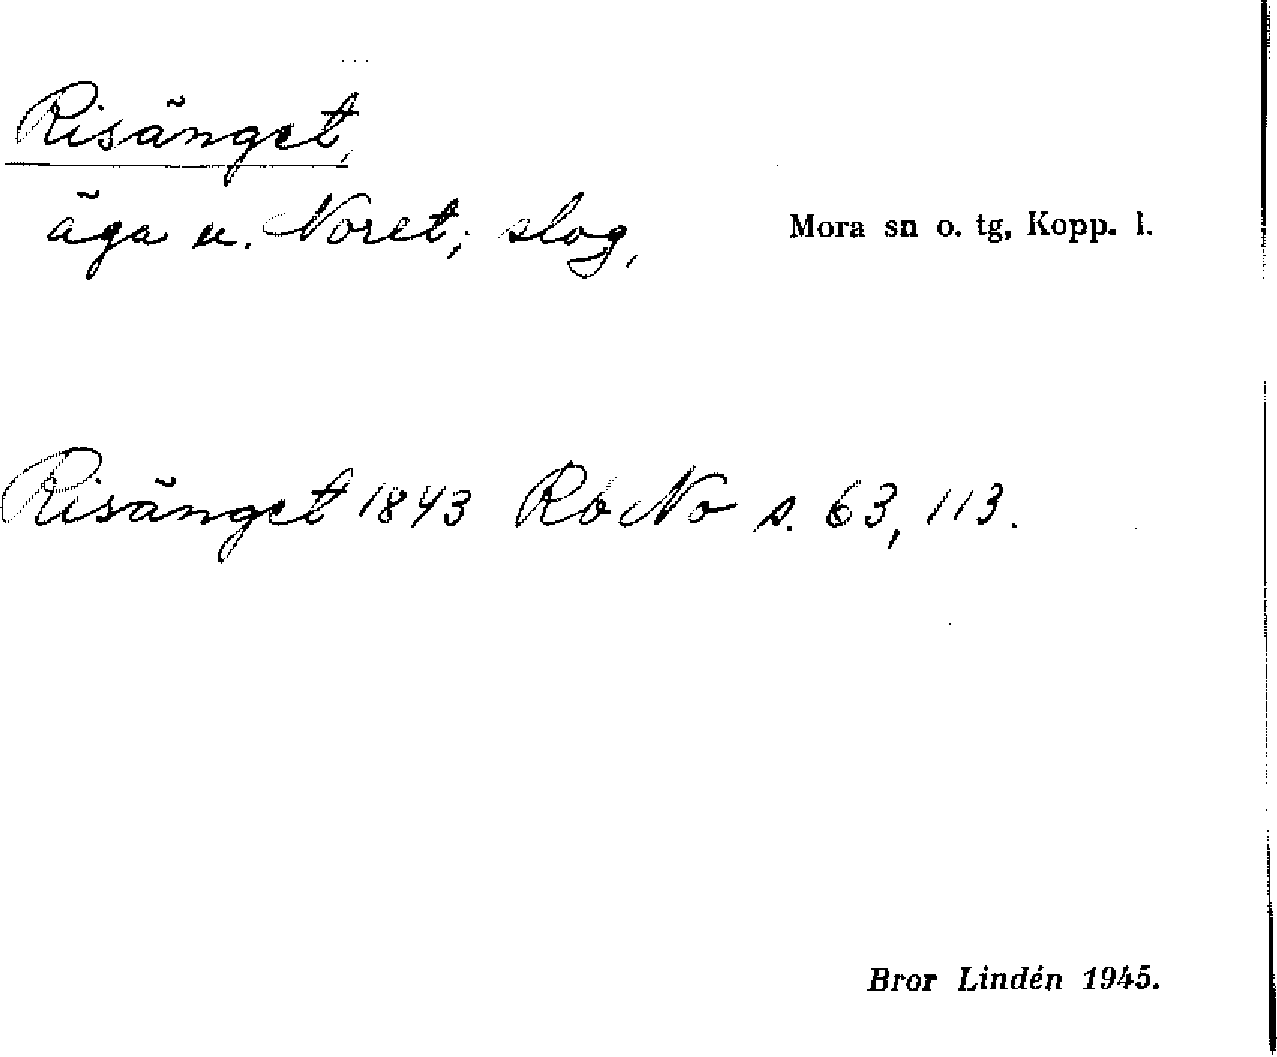 Risänget,
äga u. Noret; slog,
Mora sn o. tg, Kopp. l.
Risänget 1843 Rb No s. 63, 113.
Bror Lindén 1945.